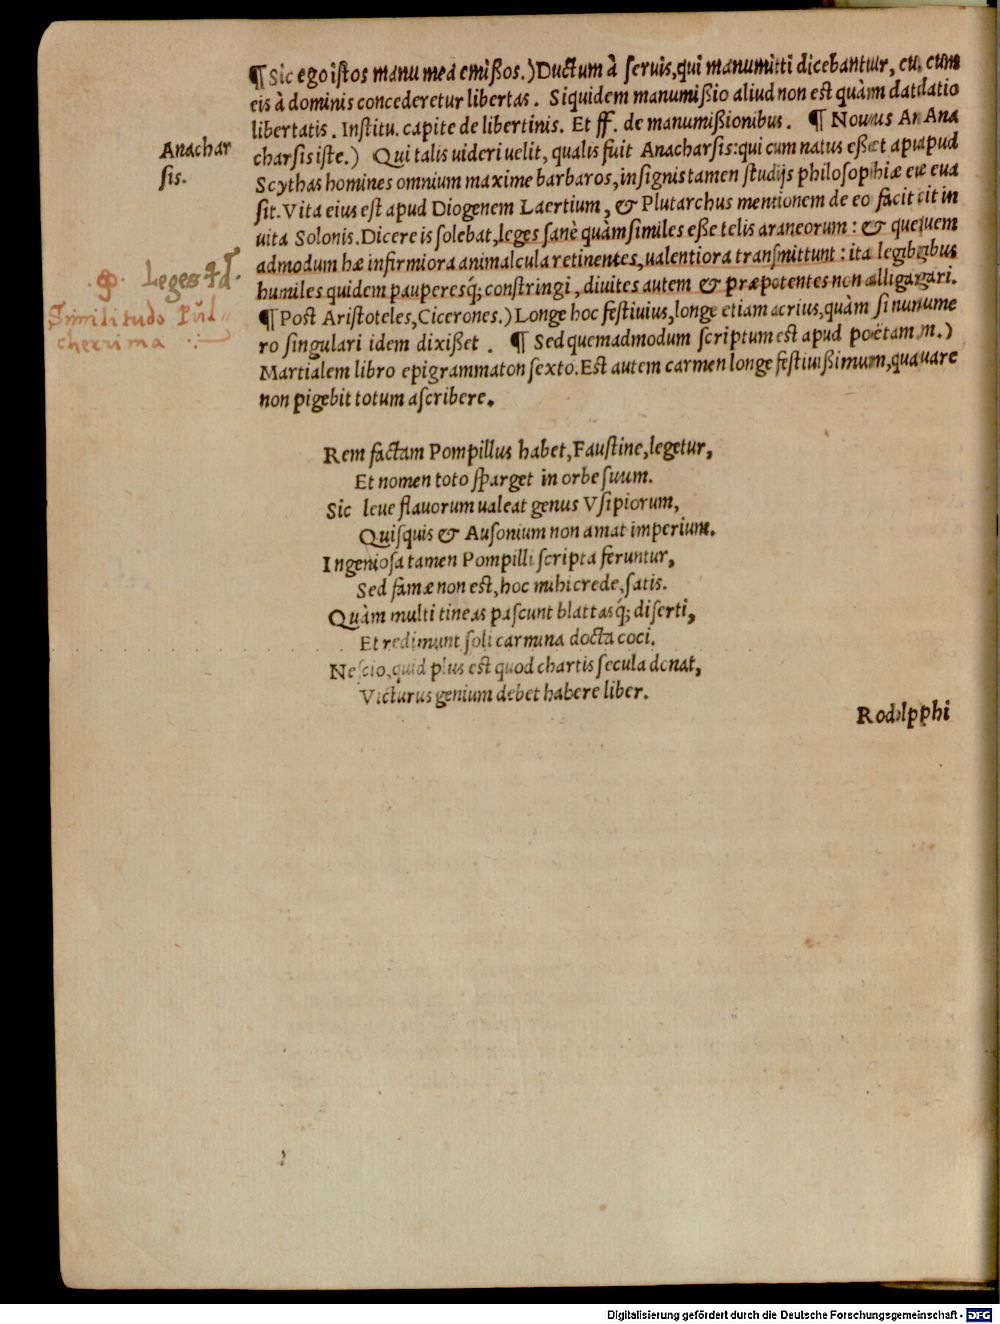 ¶ Sic ego istos manu mea emißos.) Ductum à seruis, qui manumitti dicebantur, cum
eis à dominis concederetur libertas. Siquidem manumißio aliud non est quàm datio
libertatis. Institu. capite de libertinis. Et ff. de manumißionibus. ¶ Nouus Ana
charsis iste.) Qui talis uideri uelit, qualis fuit Anacharsis: qui cum natus eßet apud
Scythas homines omnium maxime barbaros, insignis tamen studijs philosophiæ eua
sit. Vita eius est apud Diogenem Laertium, & Plutarchus mentionem de eo facit in
uita Solonis. Dicere is solebat, leges sanè quàm similes eße telis araneorum: & quem
admodum hæ infirmiora animalcula retinentes, ualentiora transmittunt: ita legibus
humiles quidem pauperesq́; constringi, diuites autem & præpotentes non alligari.
¶ Post Aristoteles, Cicerones.) Longe hoc festiuius, longe etiam acrius, quàm si nume
ro singulari idem dixißet. ¶ Sed quemadmodum scriptum est apud poëtam.)
Martialem libro epigrammaton sexto. Est autem carmen longe festiuißimum, quare
non pigebit totum ascribere.
Anachar
sis.
Leges
Similitudo Pul
cherrima
Rem factam Pompillus habet, Faustine, legetur,
Et nomen toto sparget in orbe suum.
Sic leue flauorum ualeat genus Vsipiorum,
Quisquis & Ausonium non amat imperium.
Ingeniosa tamen Pompilli scripta feruntur,
Sed famæ non est, hoc mihi crede, satis.
Quàm multi tineas pascunt blattasq́; diserti,
Et redimunt soli carmina docta coci.
Nescio, quid plus est quod chartis secula donat,
Victurus genium debet habere liber.
Rodolpphi
Digitalisierung gefördert durch die Deutsche Forschungsgemeinschaft - DFG